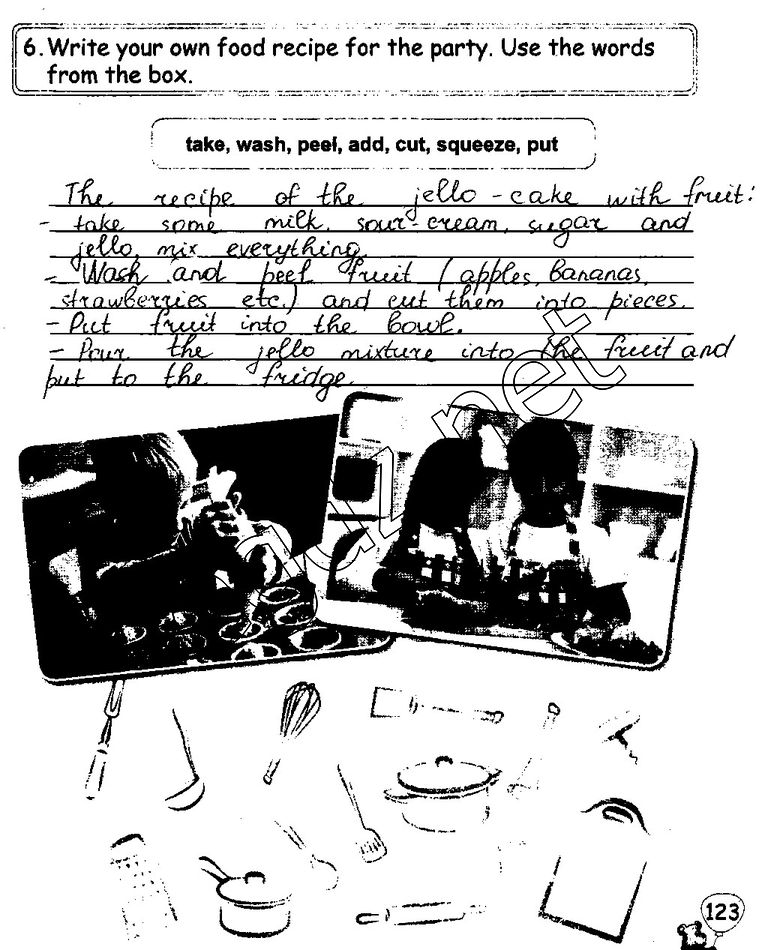 6. Write your own food recipe for the party. Use the words
from the box.
take, wash, peel, add, cut, squeeze, put
The recipe of the jello-cake with fruit:
- take some milk, sour-cream, sugar and
jello, mix everything.
- Wash and peel fruit (apples, bananas,
strawberries etc.) and cut them into pieces.
- Put fruit into the bowl.
- Pour the jello mixture into the fruit and
put to the fridge.
123